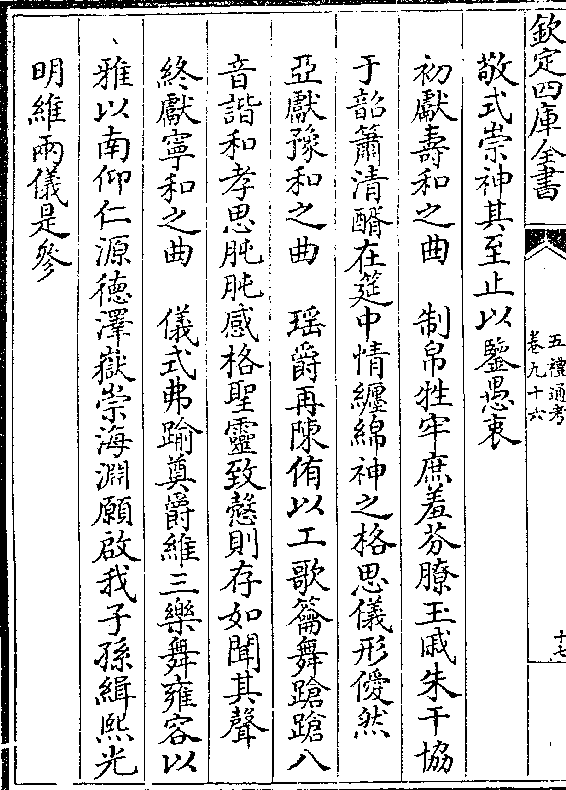 欽定四庫全書
五禮通考
卷九十六
十七
敬式崇神其至止以鑒愚衷
初獻壽和之曲　制帛牲牢庶羞芬膫玉戚朱干協
于韶簫清醑在筵中情纏綿神之格思儀形僾然
亞獻豫和之曲　瑶爵再陳侑以工歌籥舞蹌蹌八
音諧和孝思肫肫感格聖靈致慤則存如聞其聲
終獻寧和之曲　儀式弗踰奠爵維三樂舞雍容以
雅以南仰仁源徳澤嶽崇海淵願啟我子孫緝熙光
明維兩儀是參